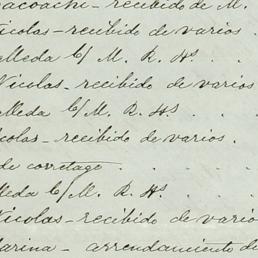 acoachi - recibido de M.
icolas - recibido de varios
lleda C/ M. R. Hs. . .
Nicolas - recibido de varios
lleda C/ M. R. Hs. . .
colas - recibido de varios.
de corretage . . . .
lleda C/ M. R. Hs. . . .
Nicolas - recibido de vario
arina - arrendamiento de